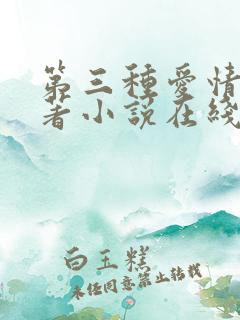 第三种爱情
著小说在线
白玉糕
未经同意禁止转载